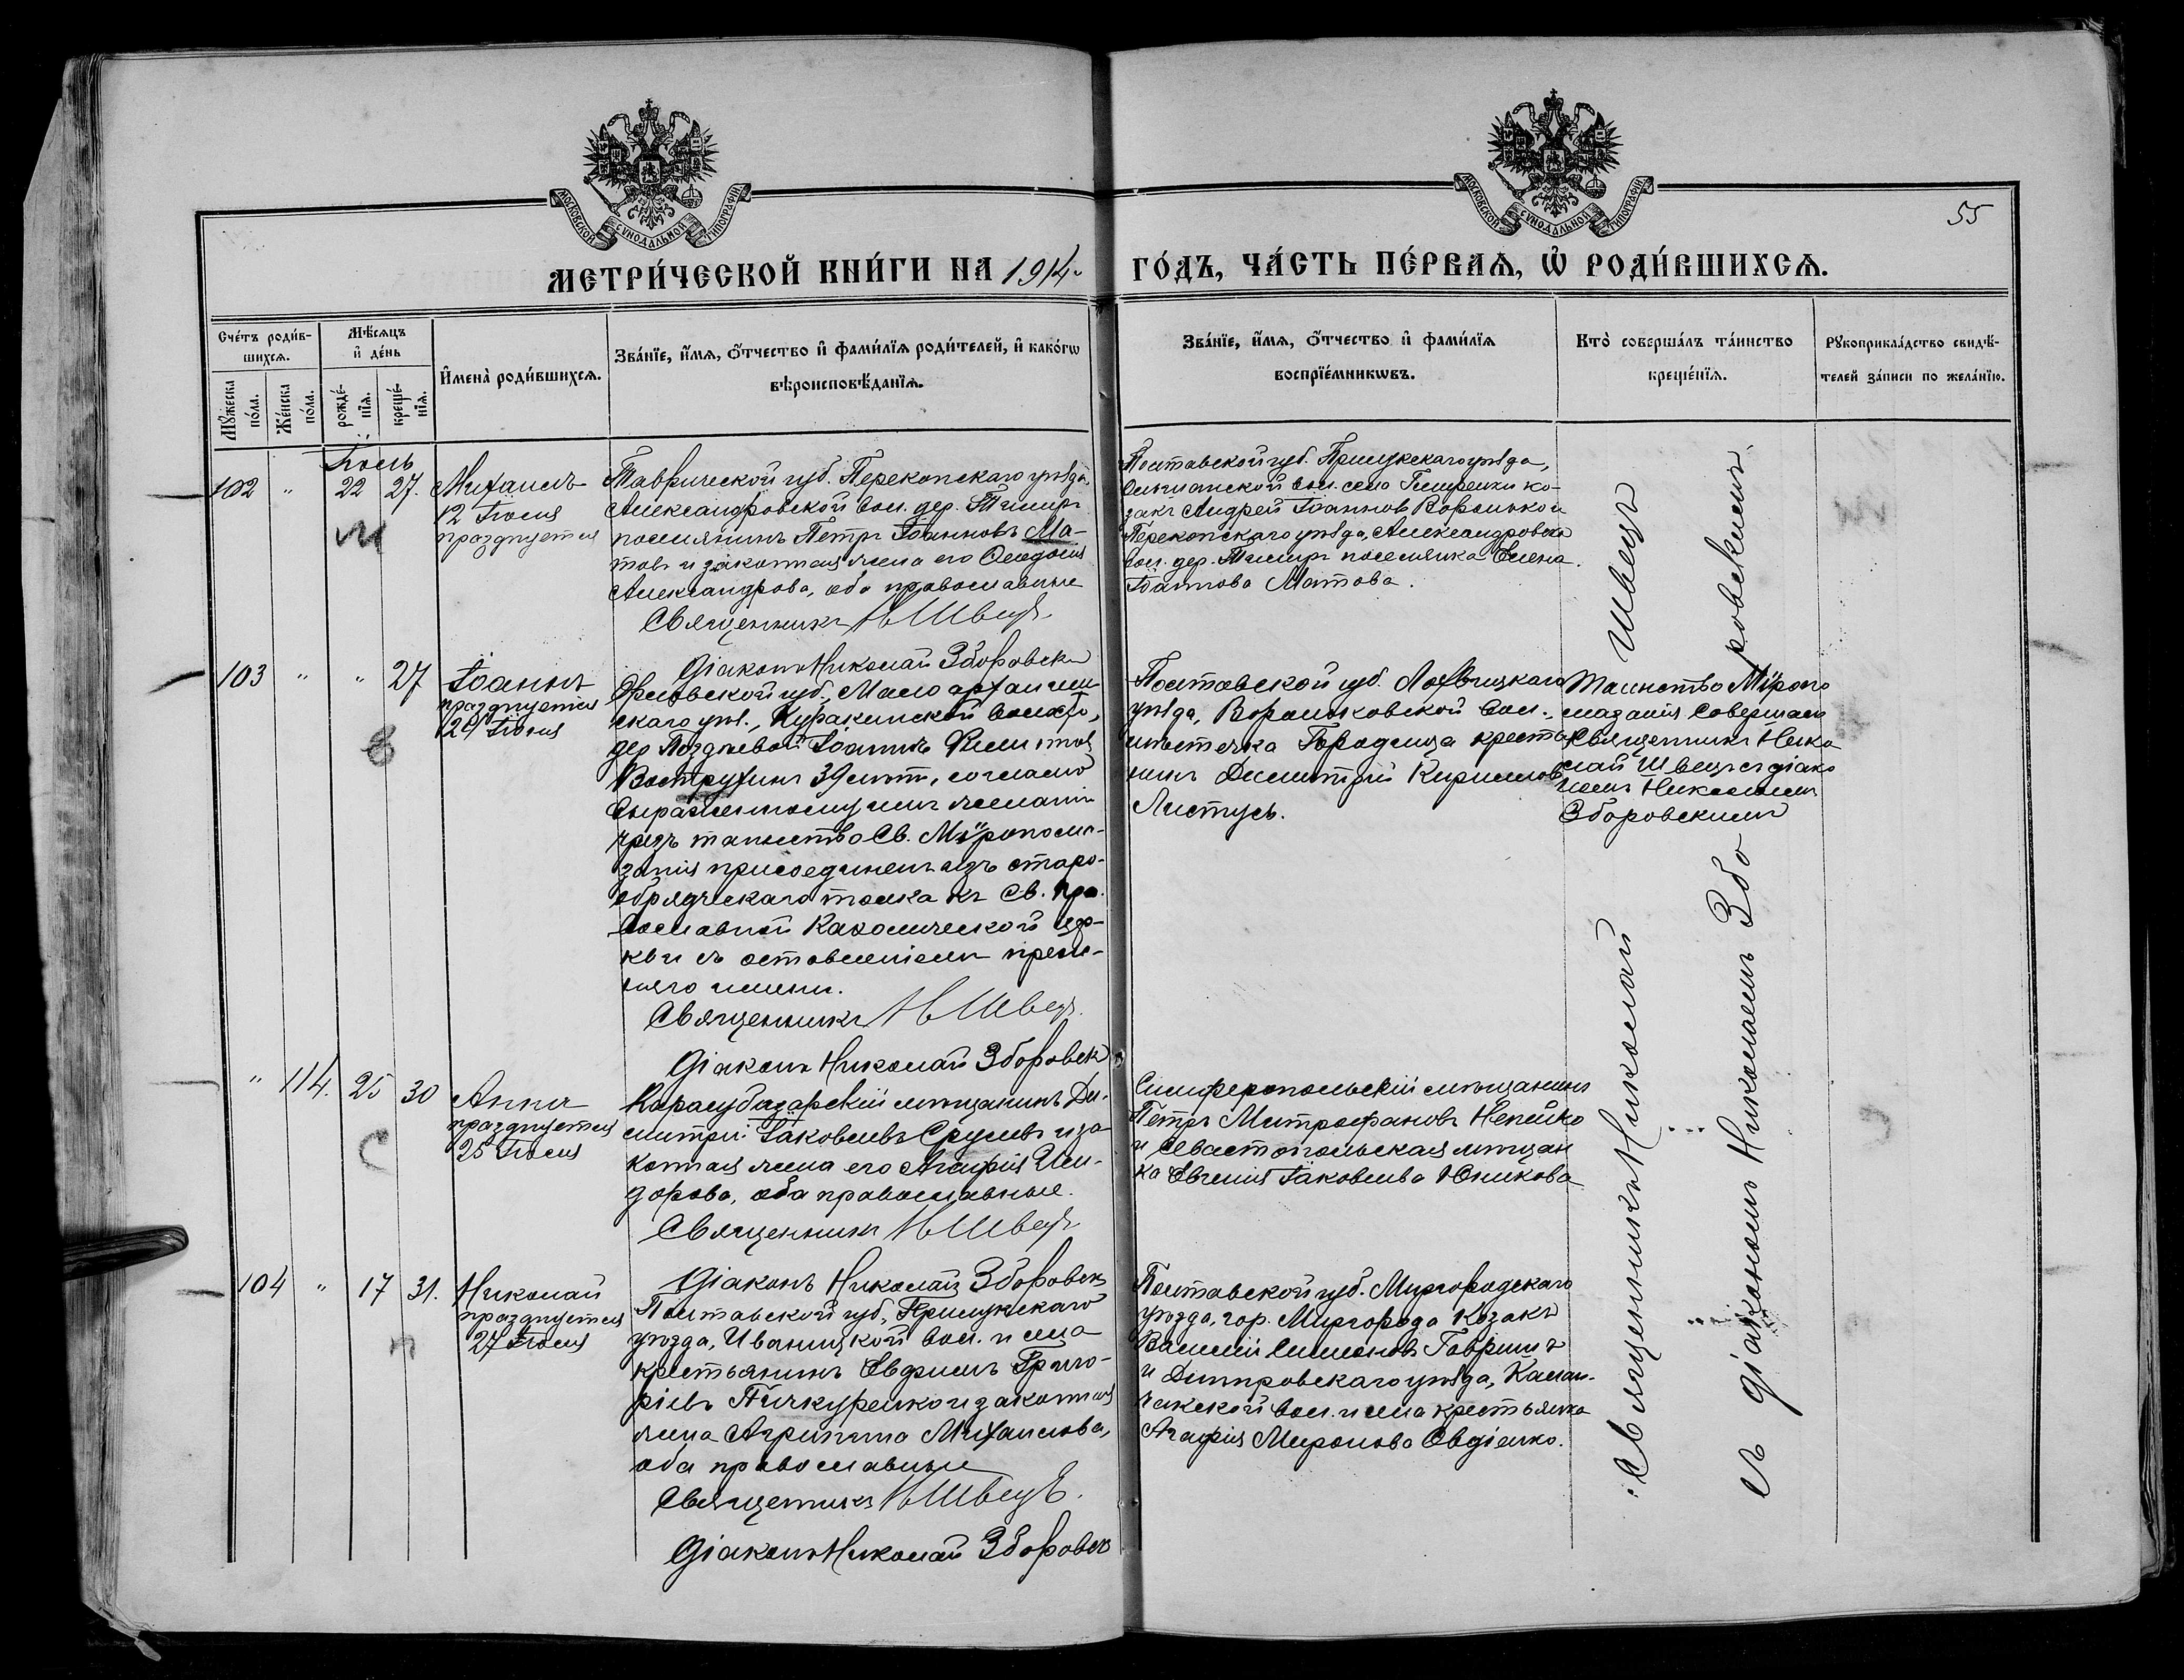 МОСКОВСКОЙ СѴНОДАЛЬНОЙ ТИПОГРАФІИ
МОСКОВСКОЙ СѴНОДАЛЬНОЙ ТИПОГРАФІИ
55
МЕТРИ́ЧЕСКОЙ КНИ́ГИ НА 1914
ГО́ДЪ, ЧА́СТЬ ПЕ́РВАѦ, Ѡ҆ РОДИ́ВШИХСѦ.
Сче́тъ роди́в-
шихсѧ.
Мꙋ́жеска по́ла.
Же́нска по́ла.
Мѣ́сѧцъ
и҆ де́нь
рожде́-
нїѧ.
креще́-
нїѧ.
И҆мена̀ роди́вшихсѧ.
Зва́нїе, и҆́мѧ, ѻ҆́тчество и҆ фами́лїѧ роди́телей, и҆ како́гѡ
вѣроисповѣ́данїѧ.
Зва́нїе, и҆́мѧ, ѻ҆́тчество и҆ фами́лїѧ
воспрїе́мникѡвъ.
Кто̀ соверша́лъ та́инство
креще́нїѧ.
Рꙋкоприкла́дство свидѣ́-
телей за́писи по жела́нїю.
Іюль
102 " 22 27.
Михаилъ
12 Іюля
празднуется
Таврической губ. Перекопскаго уѣзда,
Александровской вол. дер.
поселянинъ Петръ Іоанновъ Ма-
товъ и законная жена его Ѳеодосія
Александрова, оба православные
Священникъ Н Швецъ
Діаконъ Николай Зборовскі
Полтавской губ. Прилукскаго уѣзда,
вол. село ко-
закъ Андрей Іоанновъ Воронько и
Перекопскаго уѣзда, Александровско
вол. дер. поселянка Елена
Іоаннова Матова.
103 " " 27
Іоаннъ
празднуется
29 Іюля
Орловской губ., Мало архангель-
скаго уѣз., Куракинской волости,
дер Поздневой Іоаннъ Филиппов
Вострухинъ 39 лѣт, согласно
выраженному имъ желанію
чрезъ таинство Св. Мѵропома-
занія присоединенъ изъ старо-
обрядческаго толка къ Св. пра-
вославной Каѳолической цер-
кви съ оставленіемъ преж-
няго имени.
Священникъ Н Швецъ
Діаконъ Николай Зборовскі
Полтавской губ. Лохвицкаго
уѣзда, Вороньковской вол.,
мѣстечка Городища кресть
нинъ Димитрій Кирилловъ
Листусь.
Таинство Мѵропо
мазанія совершал
Священникъ Нико
лай Швецъ съ діако
номъ Николаемъ
Зборовскимъ
" 114. 25 30
Анна
празднуется
25 Іюля
Карасубазарскій мѣщанинъ Ди-
митрій Іаковлевъ и за-
конная жена его Агафія Иси-
дорова, оба православные.
Священникъ Н Швецъ
Діаконъ Николай Зборовскі
Симферопольскій мѣщанинъ
Петръ Митрофановъ Непейко
и Севастопольская мѣщан
ка Евгенія Іаковлева Юникова
104 " 17 31.
Николай
празднуется
27 Іюля
Полтавской губ, Прилукскаго
уѣзда, Иваницкой вол. и села
крестьянинъ Евфимъ Григо-
ріевъ и законная
жена Агрипина Михаилова,
оба православные
Священникъ Н Швецъ.
Діаконъ Николай Зборовск
Полтавской губ. Миргородскаго
уѣзда, гор. Миргорода козакъ
Василій Симеоновъ Гавришъ
и Днѣпровскаго уѣзда, Калан-
чакской вол. и села крестьянка
Агафія Миронова Овдіенко.
Священникъ Николай Швецъ
съ діакономъ Николаемъ Зборовскимъ